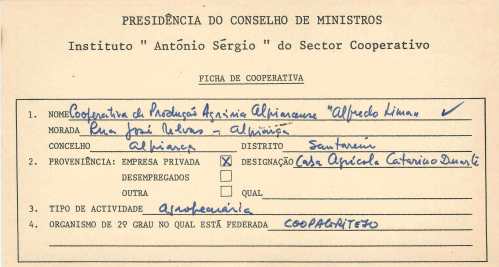 PRESIDÊNCIA DO CONSELHO DE MINISTROS
Instituto " António Sérgio " do Sector Cooperativo
FICHA DE COOPERATIVA
1. NOME Cooperativa de Produção Agrária Alpiarcense "Alfredo Lima" ✓
MORADA Rua José Relvas - Alpiarça
CONCELHO Alpiarça DISTRITO Santarém
2. PROVENIÊNCIA: EMPRESA PRIVADA ☒ DESIGNAÇÃO Casa Agrícola Catarino Duarte
DESEMPREGADOS ☐
OUTRA ☐ QUAL
3. TIPO DE ACTIVIDADE Agropecuária
4. ORGANISMO DE 2º GRAU NO QUAL ESTÁ FEDERADA COOPAGRITEJO